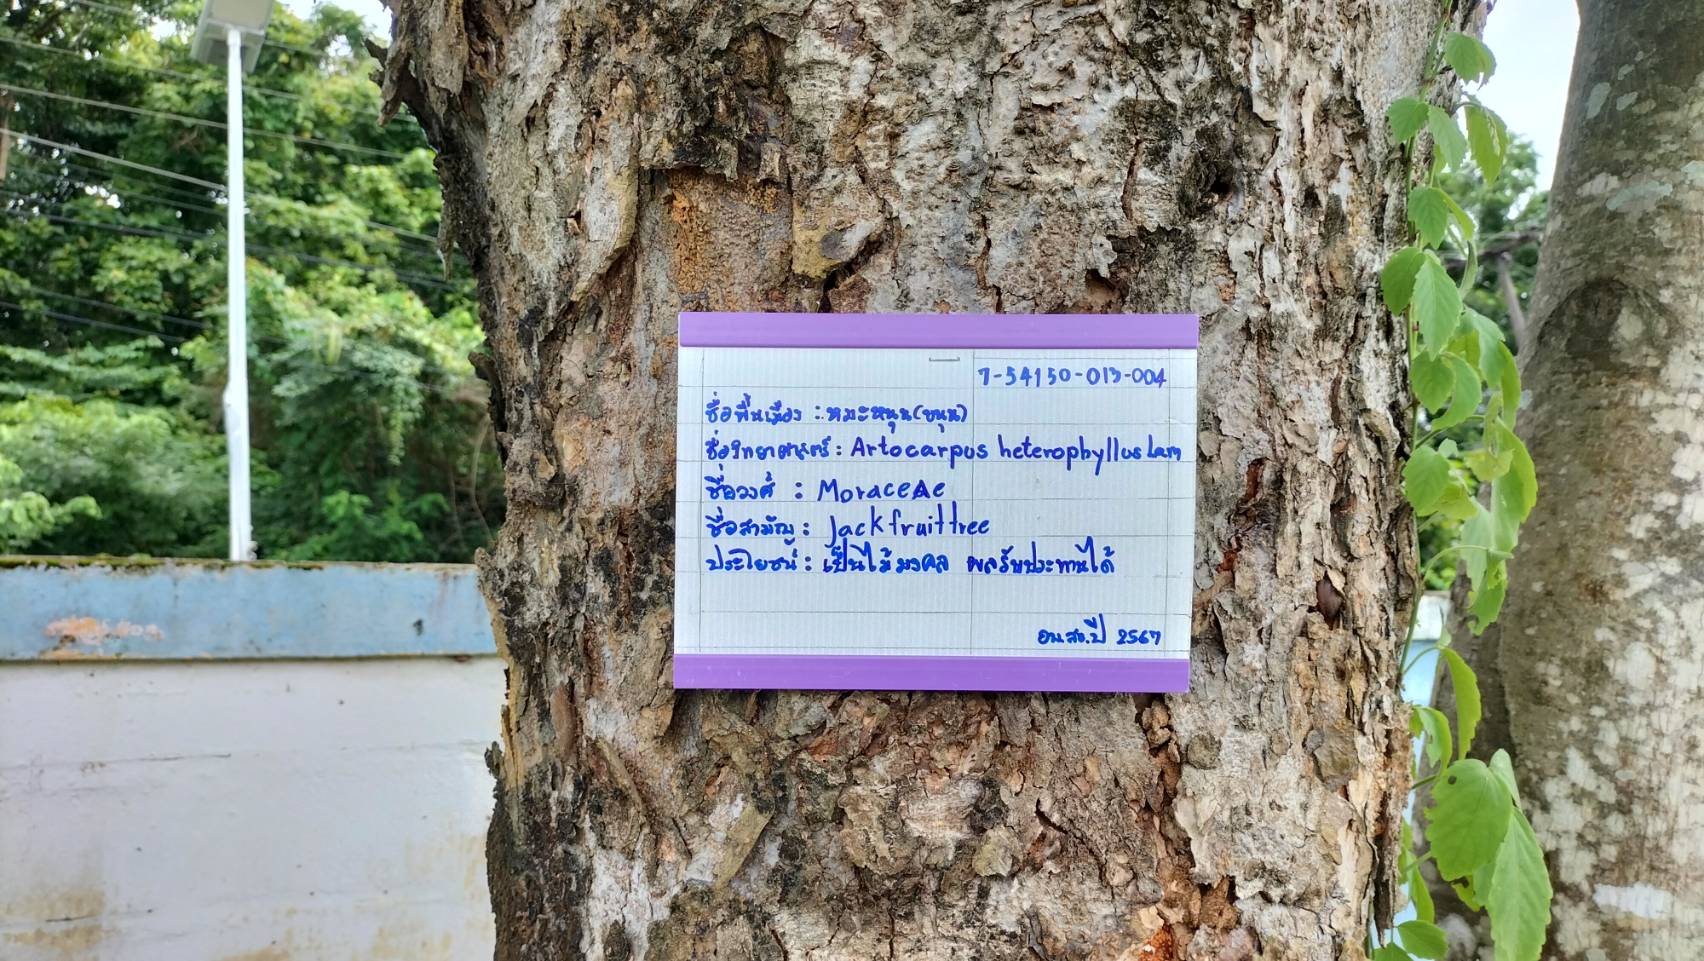 7-54150-013-004
ชื่อพื้นเมือง : หมะหนุน(ขนุน)
ชื่อวิทยาศาสตร์ : Artocarpus heterophyllus Lam
ชื่อวงศ์ : MoraceAe
ชื่อสามัญ : Jackfruit tree
ประโยชน์ : เป็นไม้มงคล ผลรับประทานได้
ปี 2567